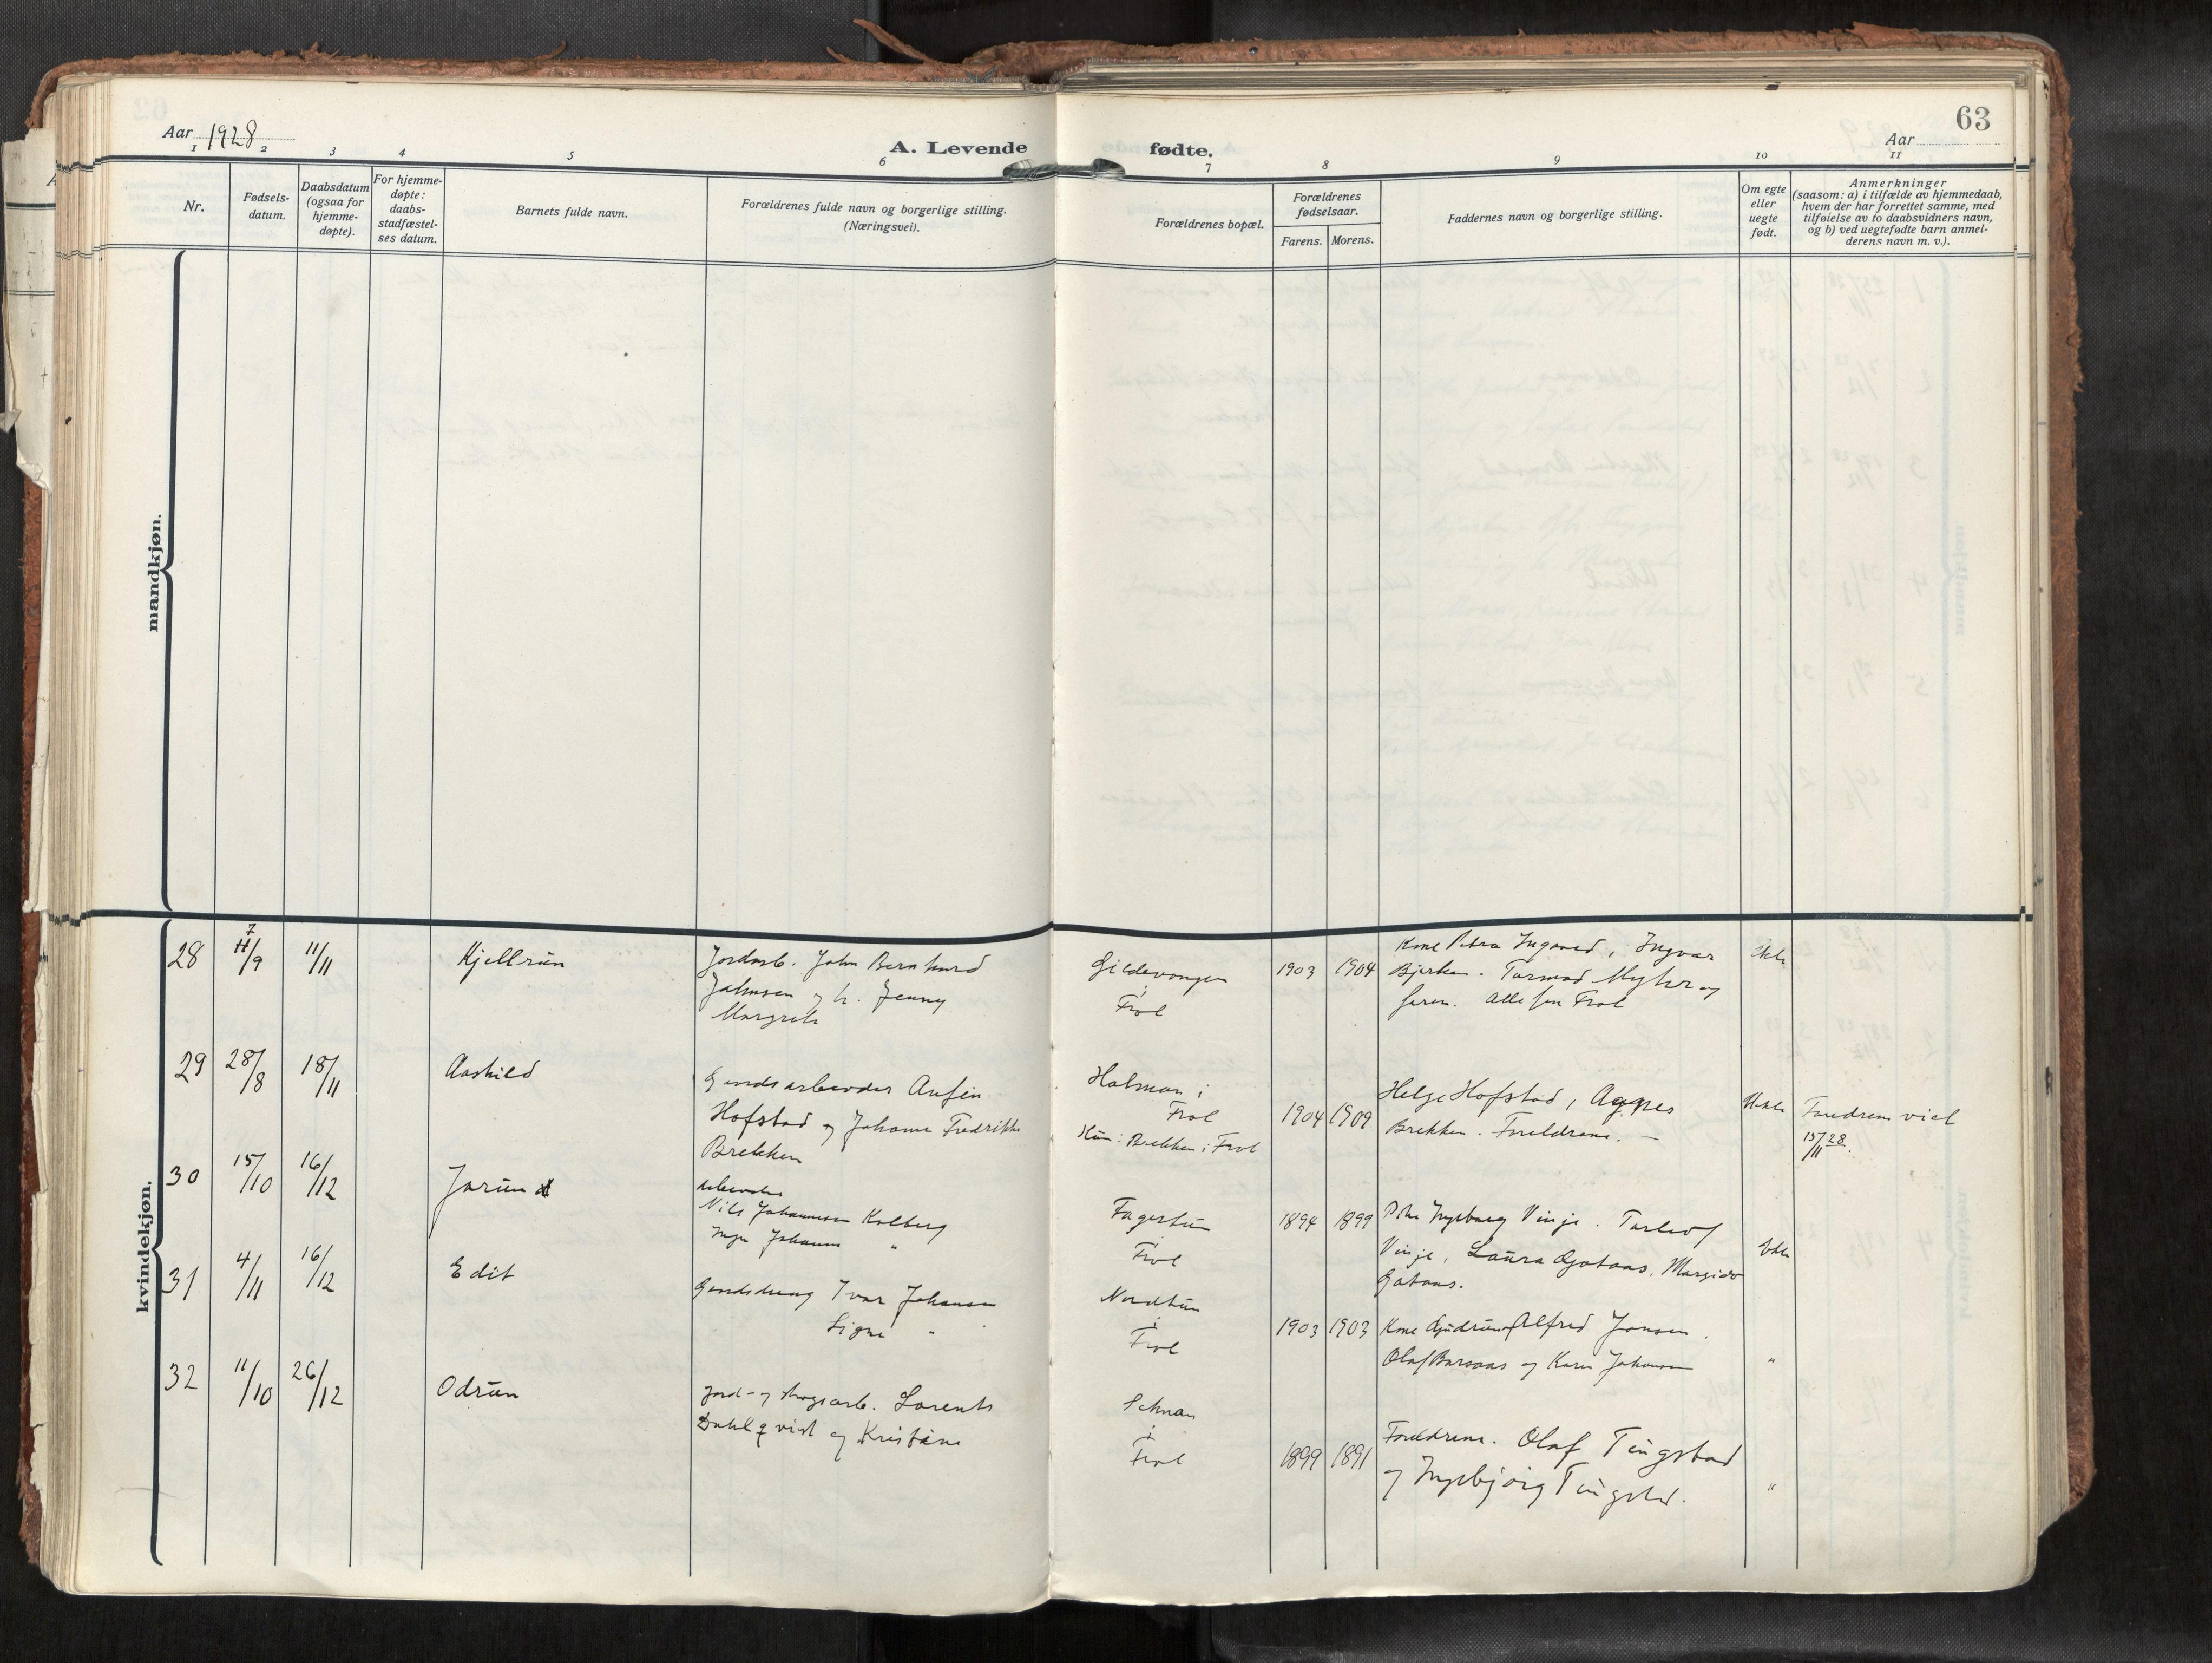 63
Aar 1928
A. Levende fødte.
Aar
1 2 3 4 5 6 7 8 9 10 11
Nr.
Fødsels-
datum.
Daabsdatum
(ogsaa for
hjemme-
døpte).
For hjemme-
døpte:
daabs-
stadfæstel-
ses datum.
Barnets fulde navn.
Forældrenes fulde navn og borgerlige stilling.
(Næringsvei).
Forældrenes bopæl.
Forældrenes
fødselsaar.
Farens.
Morens.
Faddernes navn og borgerlige stilling.
Om egte
eller
uegte
født.
Anmerkninger
(saasom: a) i tilfælde av hjemmedaab,
hvem der har forrettet samme, med
tilføielse av to daabsvidners navn,
og b) ved uegtefødte barn anmel-
derens navn m. v.).
mandkjøn.
kvindekjøn.
28 7/9 11/11 Kjellrun
Jordarb. John Bernhard
Johnsen og h. Jenny
Margrete
Gildevangen
i
Frol
1903 1904
Kone Petra Ingvard, Ingvar
Bjerken. Tormod Myhr og
faren. Alle fra Frol
Ekte
29 28/8 18/11 Aashild
Gaardsarbeider Anfin
Hofstad og Johanna Fredrikke
Brekken
Holman i
Frol
Hun: Brekken i Frol
1904 1909
Helge Hofstad, Agnes
Brekken. Foreldrene. —
Uekte
Foreldrene viet
15/11 28.
30 15/10 16/12 Jorun
Arbeider
Nils Johannessen Kolberg
Inga Johanna "
Fagertun
i
Frol
1894 1899
Pike Ingeborg Vinje. Torleif
Vinje, Laura Gotaas, Margido
Gotaas.
Ekte
31 4/11 16/12 Edit
Gaardsdreng Ivar Johansen
Signe "
Nordtun
i
Frol
1903 1903
Kone Gudrun Alfred Jonsen.
Olaf Barsaas og Karen Johansen
"
32 11/10 26/12 Odrun
Jord- og skogsarb. Lorents
Dahlqvist og Kristine
i
Frol
1899 1891
Foreldrene. Olaf Tingstad
og Ingebjørg Tingstad.
"